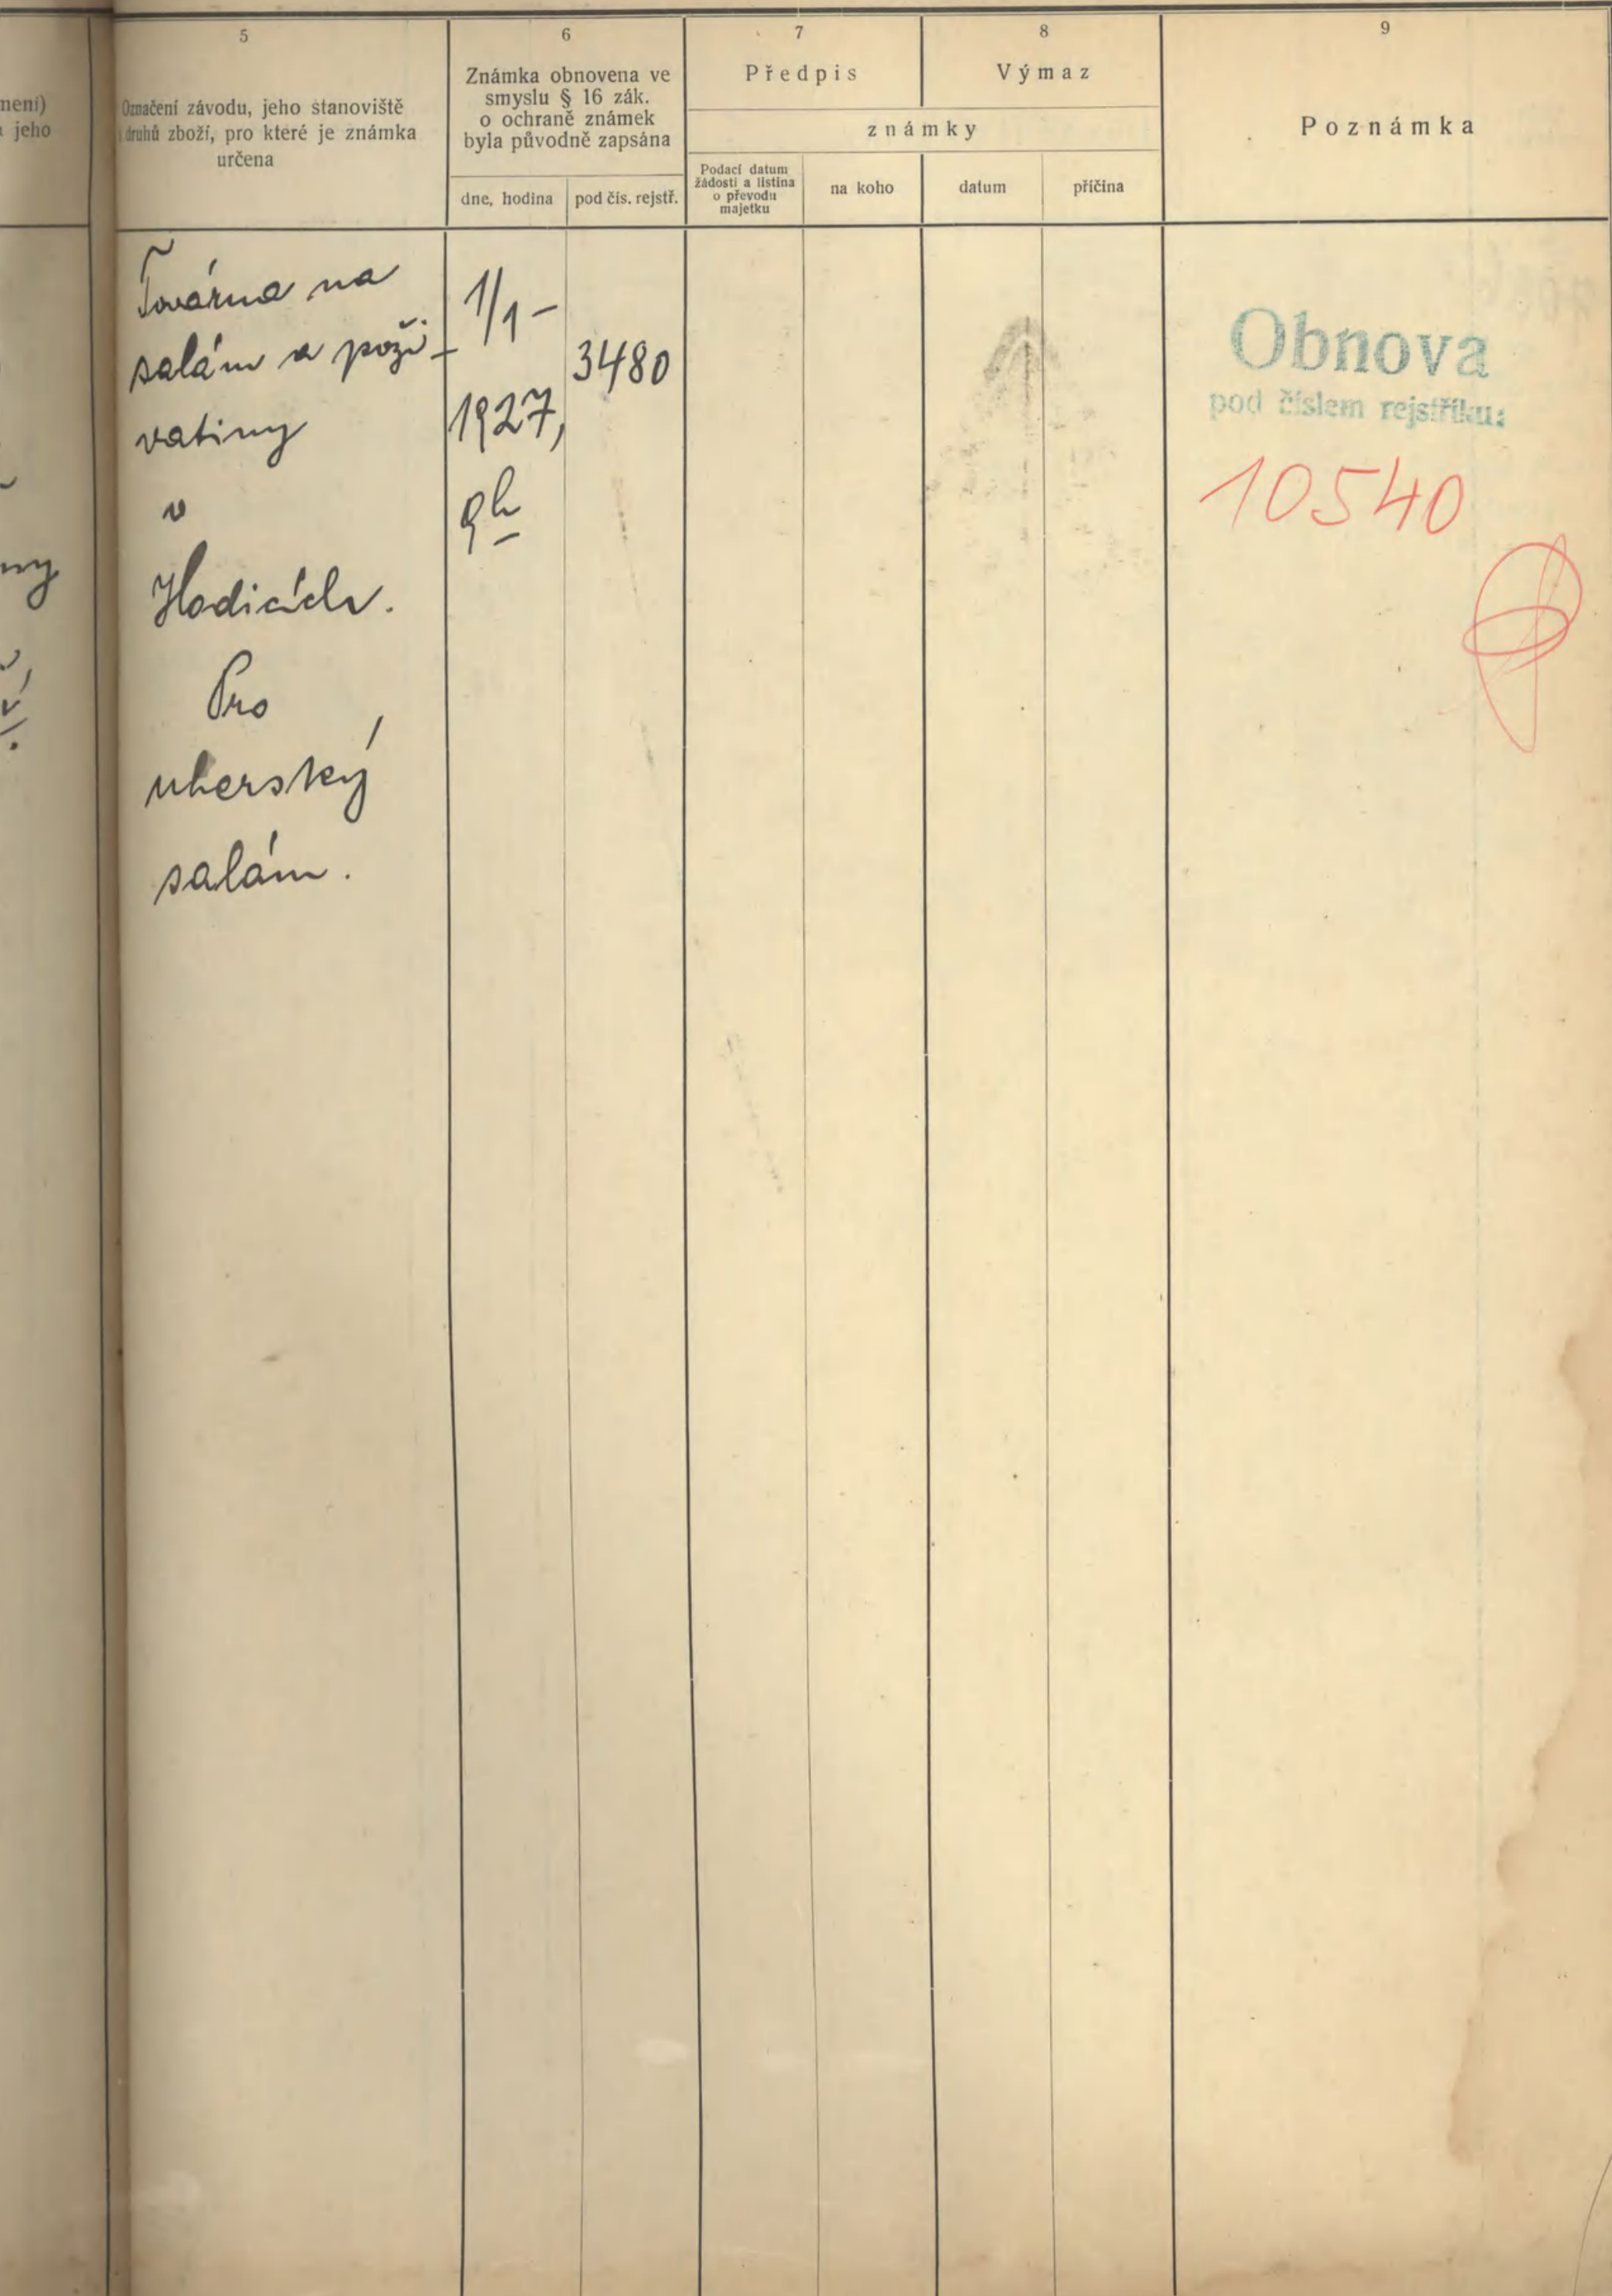 není)
jeho
5
Označení závodu, jeho stanoviště
druhů zboží, pro které je známka
určena
6
Známka obnovena ve
smyslu § 16 zák.
o ochraně známek
byla původně zapsána
dne, hodina
pod čís. rejstř.
7
Předpis
8
Výmaz
známky
Podací datum
žádosti a listina
o převodu
majetku
na koho
datum
příčina
9
Poznámka
Továrna na
salám a poži-
vatiny
v
Hodicích.
Pro
uherský
salám.
1/1-
1927,
9h
3480
Obnova
pod číslem rejstříku:
10540